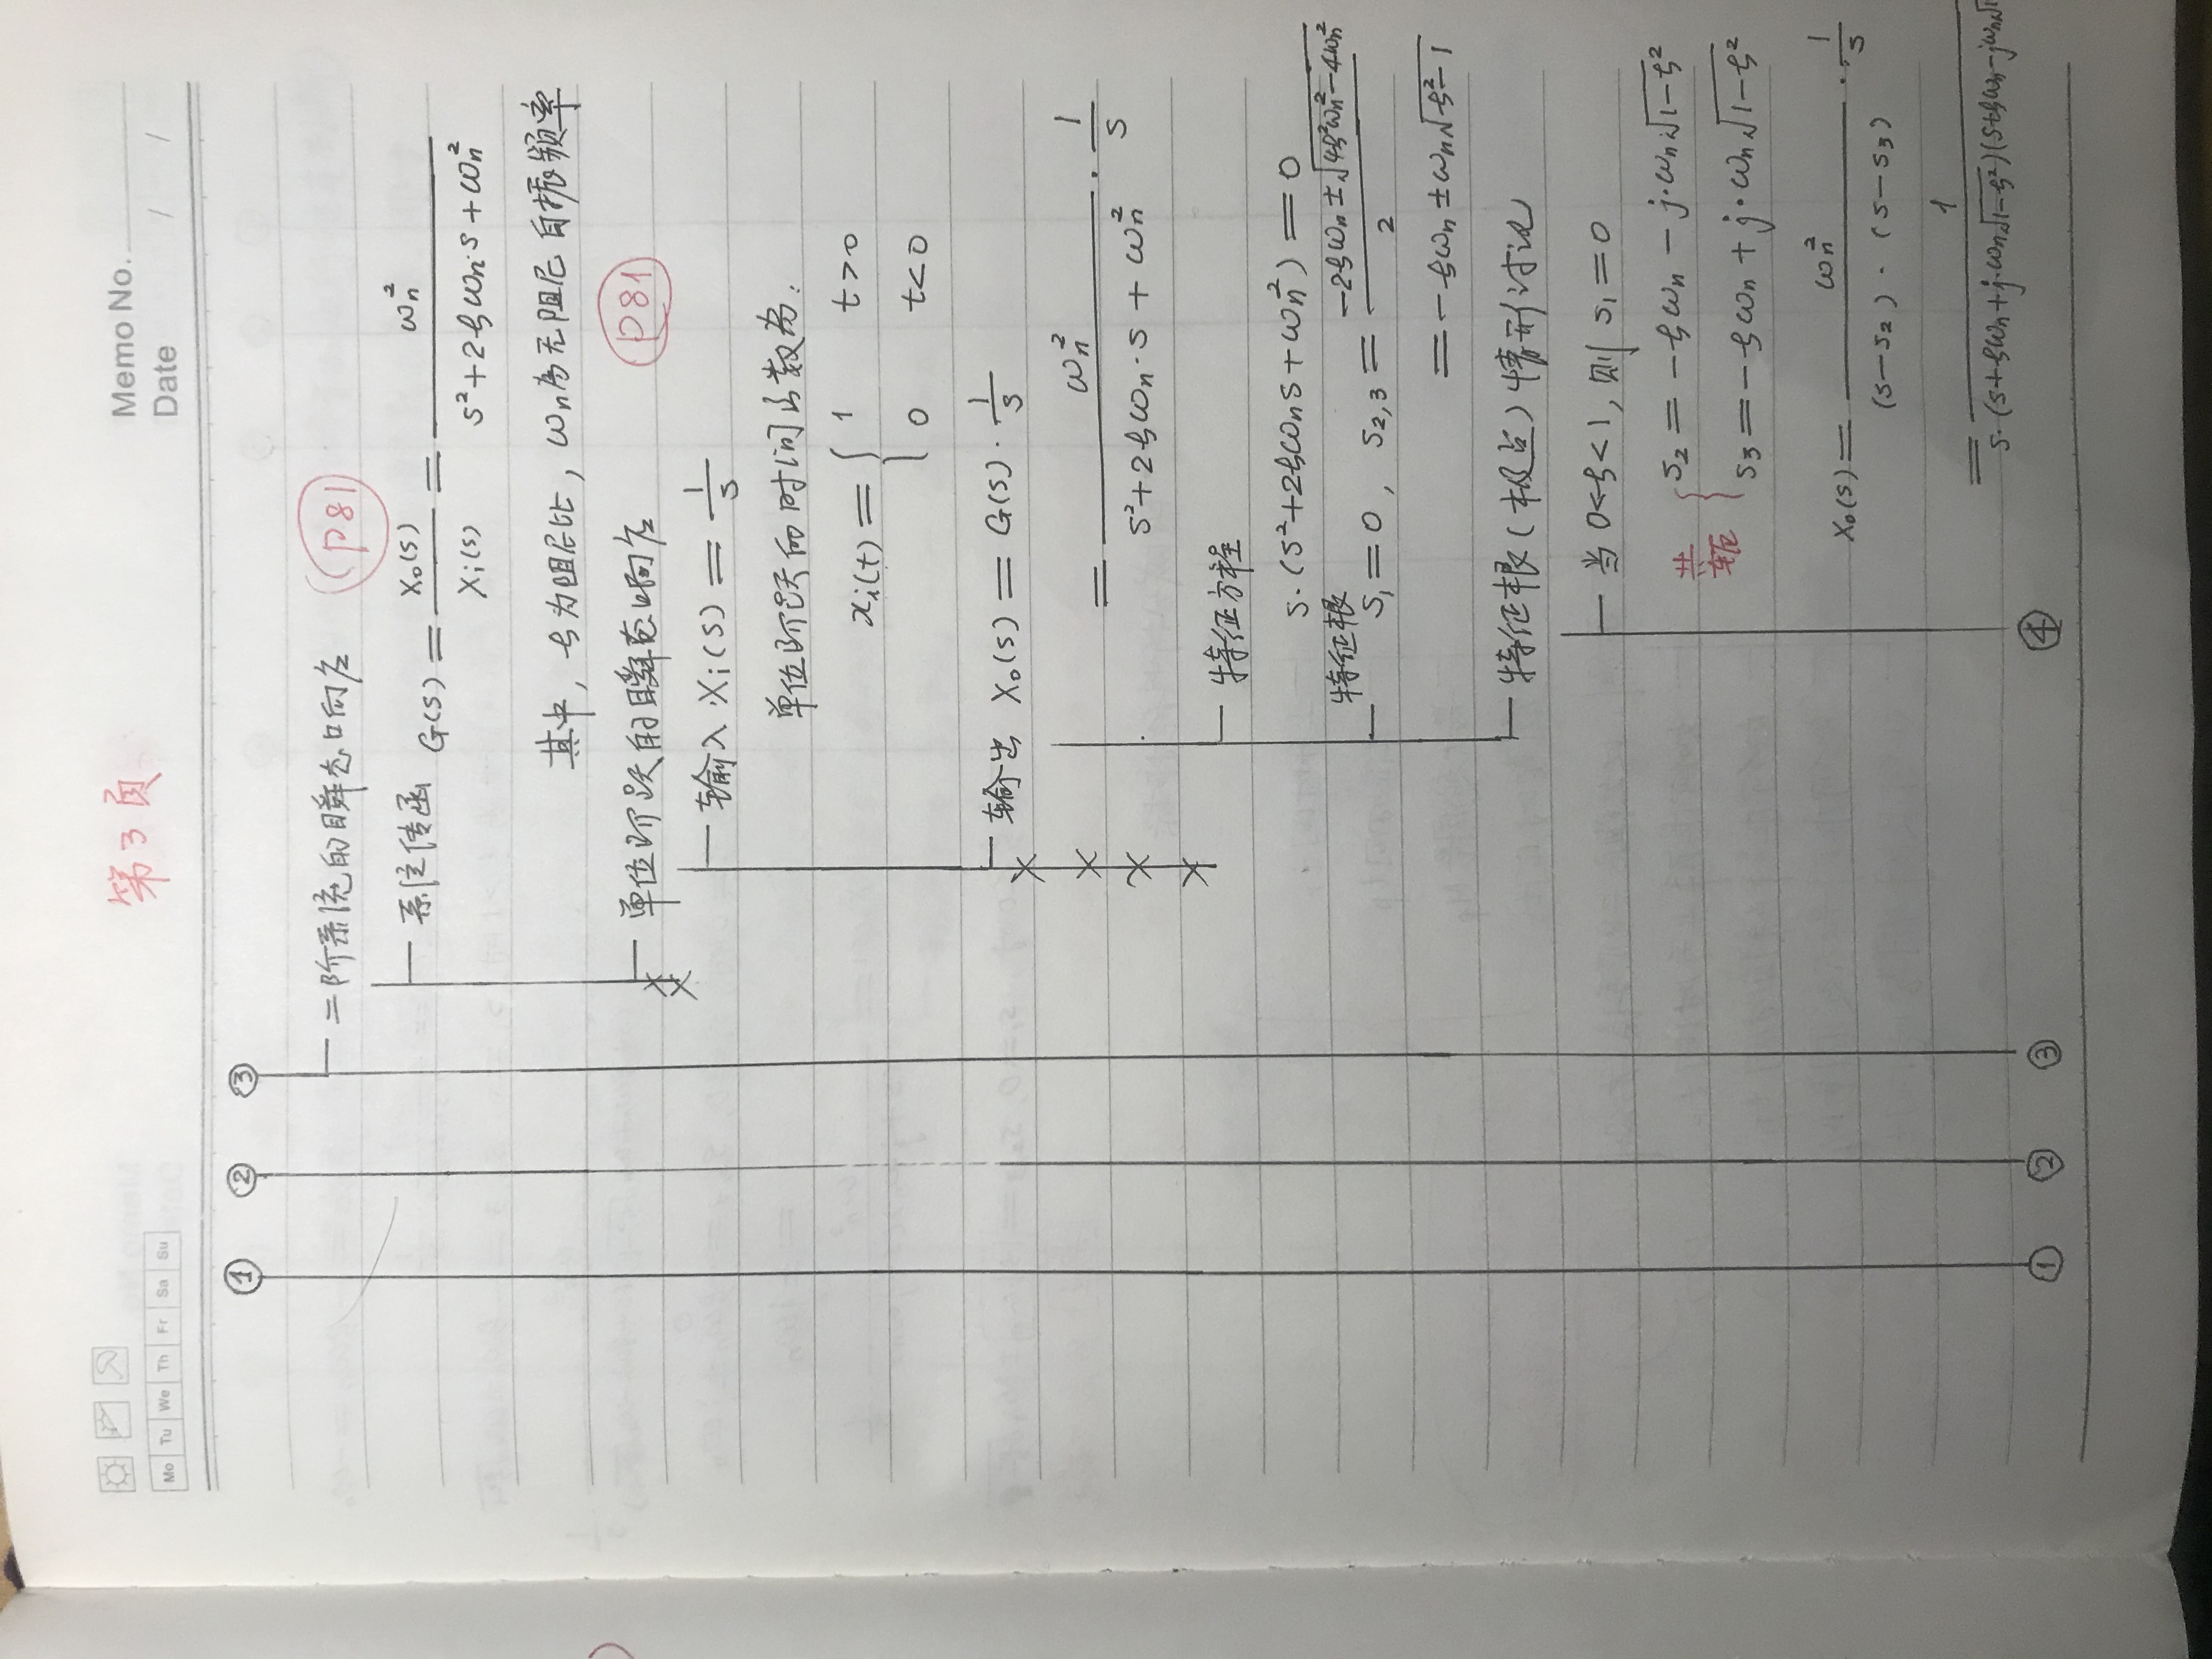 第3页
Memo No.
Date / /
Mo Tu We Th Fr Sa Su
① ② ③
二阶系统的瞬态响应 P81
系统传函 G(s) = Xo(s)/Xi(s) = ωn²/(s²+2ξωn·s+ωn²)
其中，ξ为阻尼比，ωn为无阻尼自振频率
单位阶跃的瞬态响应 P81
输入 Xi(s) = 1/s
单位阶跃的时间函数为：
xi(t) = { 1 t>0
0 t<0
输出 Xo(s) = G(s)·1/s
= ωn²/(s²+2ξωn·s+ωn²) · 1/s
特征方程
s·(s²+2ξωns+ωn²) = 0
特征根
s₁=0, s₂,₃ = (-2ξωn±√(4ξ²ωn²-4ωn²))/2
= -ξωn±ωn√(ξ²-1)
特征根(极点)情形讨论
当 0<ξ<1, 则 s₁=0
共轭 { s₂ = -ξωn - j·ωn√(1-ξ²)
s₃ = -ξωn + j·ωn√(1-ξ²)
Xo(s) = ωn²/((s-s₂)·(s-s₃)) · 1/s
= 1/(s·(s+ξωn+j·ωn√(1-ξ²))(s+ξωn-jωn√1
① ② ③ ④